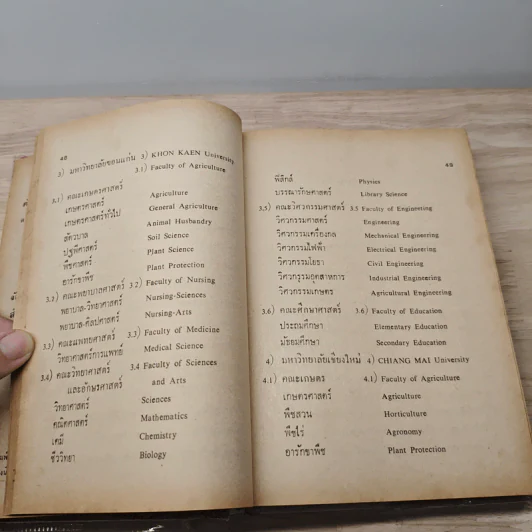 48
3) มหาวิทยาลัยขอนแก่น 3) KHON KAEN University
3.1) Faculty of Agriculture
3.1) คณะเกษตรศาสตร์
เกษตรศาสตร์ Agriculture
เกษตรศาสตร์ทั่วไป General Agriculture
สัตวบาล Animal Husbandry
ปฐพีศาสตร์ Soil Science
พืชศาสตร์ Plant Science
อารักขาพืช Plant Protection
3.2) คณะพยาบาลศาสตร์ 3.2) Faculty of Nursing
พยาบาล-วิทยาศาสตร์ Nursing-Sciences
พยาบาล-ศิลปศาสตร์ Nursing-Arts
3.3) คณะแพทยศาสตร์ 3.3) Faculty of Medicine
วิทยาศาสตร์การแพทย์ Medical Science
3.4) คณะวิทยาศาสตร์ 3.4 Faculty of Sciences
และอักษรศาสตร์ and Arts
วิทยาศาสตร์ Sciences
คณิตศาสตร์ Mathematics
เคมี Chemistry
ชีววิทยา Biology
49
ฟิสิกส์ Physics
บรรณารักษศาสตร์ Library Science
3.5) คณะวิศวกรรมศาสตร์ 3.5 Faculty of Engineering
วิศวกรรมศาสตร์ Engineering
วิศวกรรมเครื่องกล Mechanical Engineering
วิศวกรรมไฟฟ้า Electrical Engineering
วิศวกรรมโยธา Civil Engineering
วิศวกรรมอุตสาหการ Industrial Engineering
วิศวกรรมเกษตร Agricultural Engineering
3.6) คณะศึกษาศาสตร์ 3.6) Faculty of Education
ประถมศึกษา Elementary Education
มัธยมศึกษา Secondary Education
4) มหาวิทยาลัยเชียงใหม่ 4) CHIANG MAI University
4.1) คณะเกษตร 4.1) Faculty of Agriculture
เกษตรศาสตร์ Agriculture
พืชสวน Horticulture
พืชไร่ Agronomy
อารักขาพืช Plant Protection